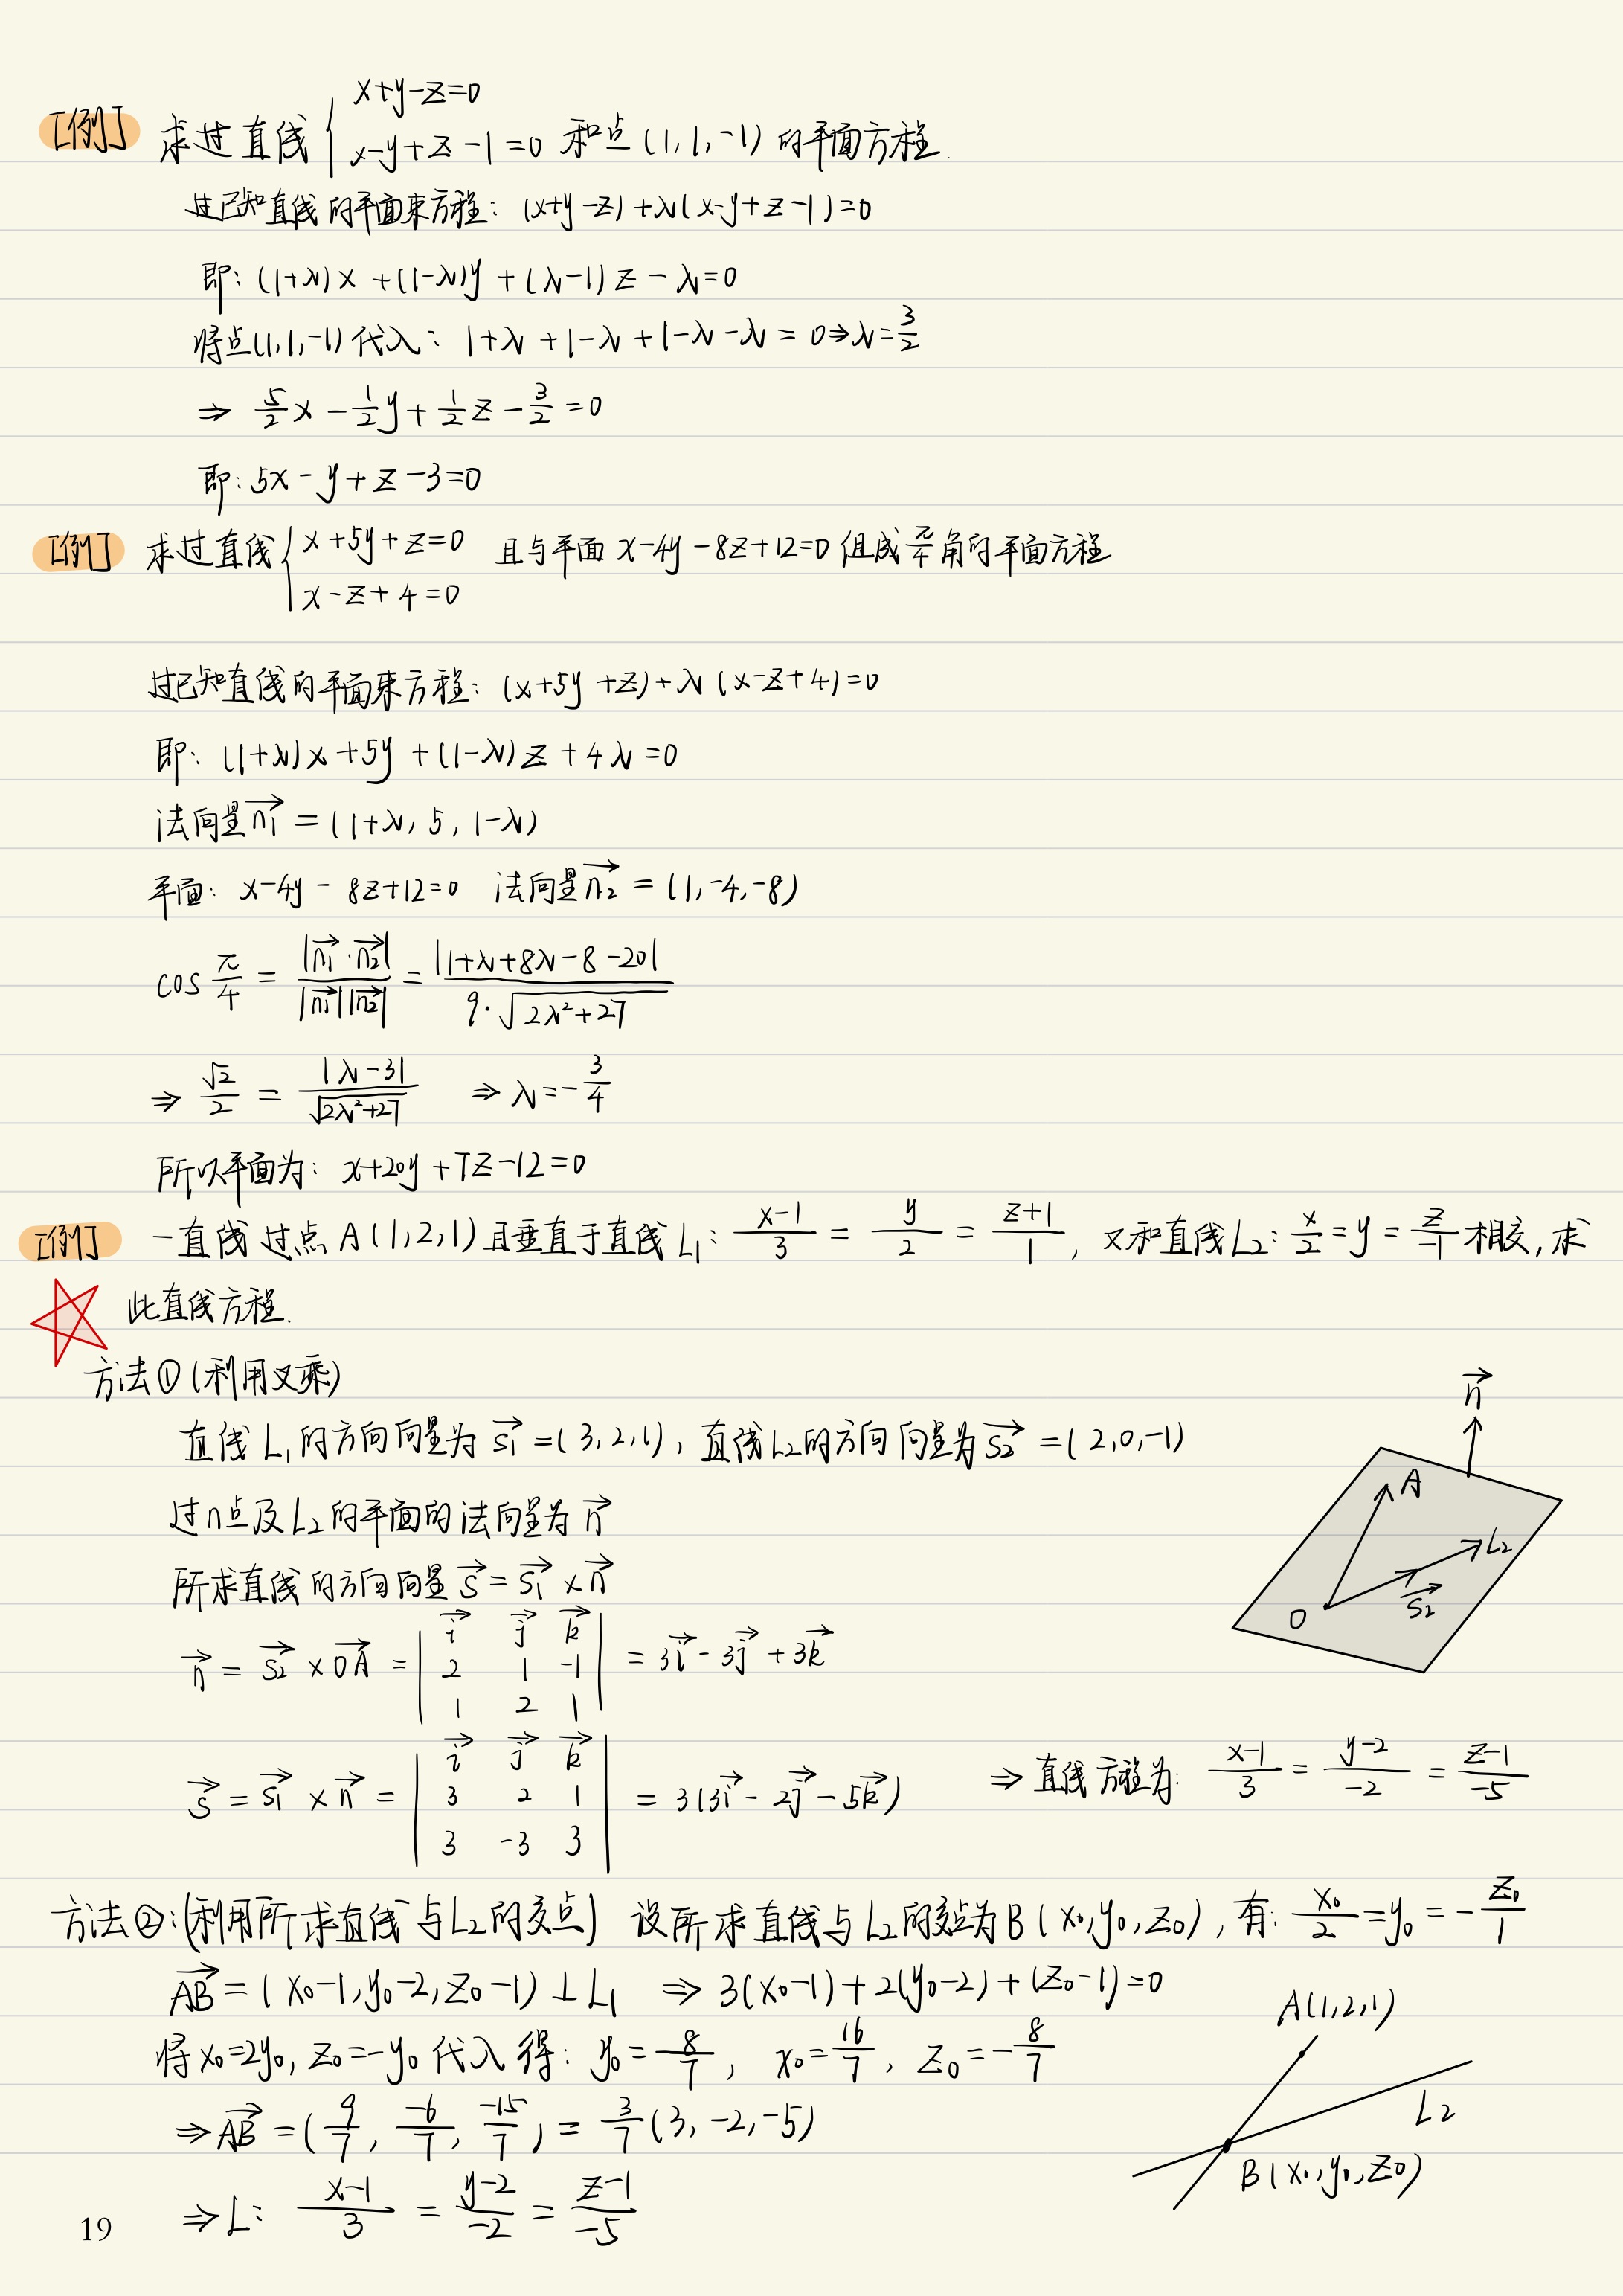 [例] 求过直线 { x+y-z=0
x-y+z-1=0 和点(1,1,-1)的平面方程.
过已知直线的平面束方程: (x+y-z)+λ(x-y+z-1)=0
即: (1+λ)x+(1-λ)y+(λ-1)z-λ=0
将点(1,1,-1)代入: 1+λ+1-λ+1-λ-λ=0⇒λ=3/2
⇒ 5/2x-1/2y+1/2z-3/2=0
即: 5x-y+z-3=0
[例] 求过直线 { x+5y+z=0 且与平面 x-4y-8z+12=0 组成π/4角的平面方程
x-z+4=0
过已知直线的平面束方程: (x+5y+z)+λ(x-z+4)=0
即: (1+λ)x+5y+(1-λ)z+4λ=0
法向量n₁→=(1+λ, 5, 1-λ)
平面: x-4y-8z+12=0 法向量n₂→=(1,-4,-8)
cos π/4 = |n₁→·n₂→|/|n₁→||n₂→| = |1+λ+8λ-8-20|/9·√(2λ²+27)
⇒ √2/2 = |λ-3|/√(2λ²+27) ⇒ λ=-3/4
所以平面为: x+20y+7z-12=0
[例] 一直线过点A(1,2,1)且垂直于直线L₁: (x-1)/3 = y/2 = (z+1)/1, 又和直线L₂: x/2=y=z/-1相交, 求
此直线方程.
方法①(利用叉乘)
直线L₁的方向向量为s₁→=(3,2,1), 直线L₂的方向向量为s₂→=(2,0,-1)
过n点及L₂的平面的法向量为n→
所求直线的方向向量s→=s₁→×n→
n→=s₂→×OA→= | i→ j→ k→ |
| 2 1 -1 | = 3i→-3j→+3k→
| 1 2 1 |
n→
A
L₂
s₂→
O
s→=s₁→×n→= | i→ j→ k→ |
| 3 2 1 | = 3(3i→-2j→-5k→) ⇒ 直线方程为: (x-1)/3=(y-2)/-2=(z-1)/-5
| 3 -3 3 |
方法②:(利用所求直线与L₂的交点) 设所求直线与L₂的交点为B(x₀,y₀,z₀), 有: x₀/2=y₀=-z₀/1
AB→=(x₀-1,y₀-2,z₀-1)⊥L₁ ⇒ 3(x₀-1)+2(y₀-2)+(z₀-1)=0
将x₀=2y₀, z₀=-y₀代入得: y₀=8/7, x₀=16/7, z₀=-8/7
⇒AB→=(9/7, -6/7, -15/7)=3/7(3,-2,-5)
⇒L: (x-1)/3=(y-2)/-2=(z-1)/-5
A(1,2,1)
L₂
B(x₀,y₀,z₀)
19